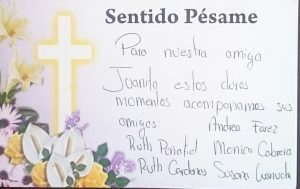 Sentido Pésame
Para nuestra amiga
Juanita estos duros
momentos acompañamos sus
amigos: Andrea Farez
Ruth Peñafiel Monica Cabrera
Ruth Cardenas Susana Guanuch